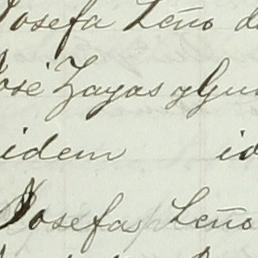 Josefa Leño d
José Zayas y Gu
idem id
Josefa Leño